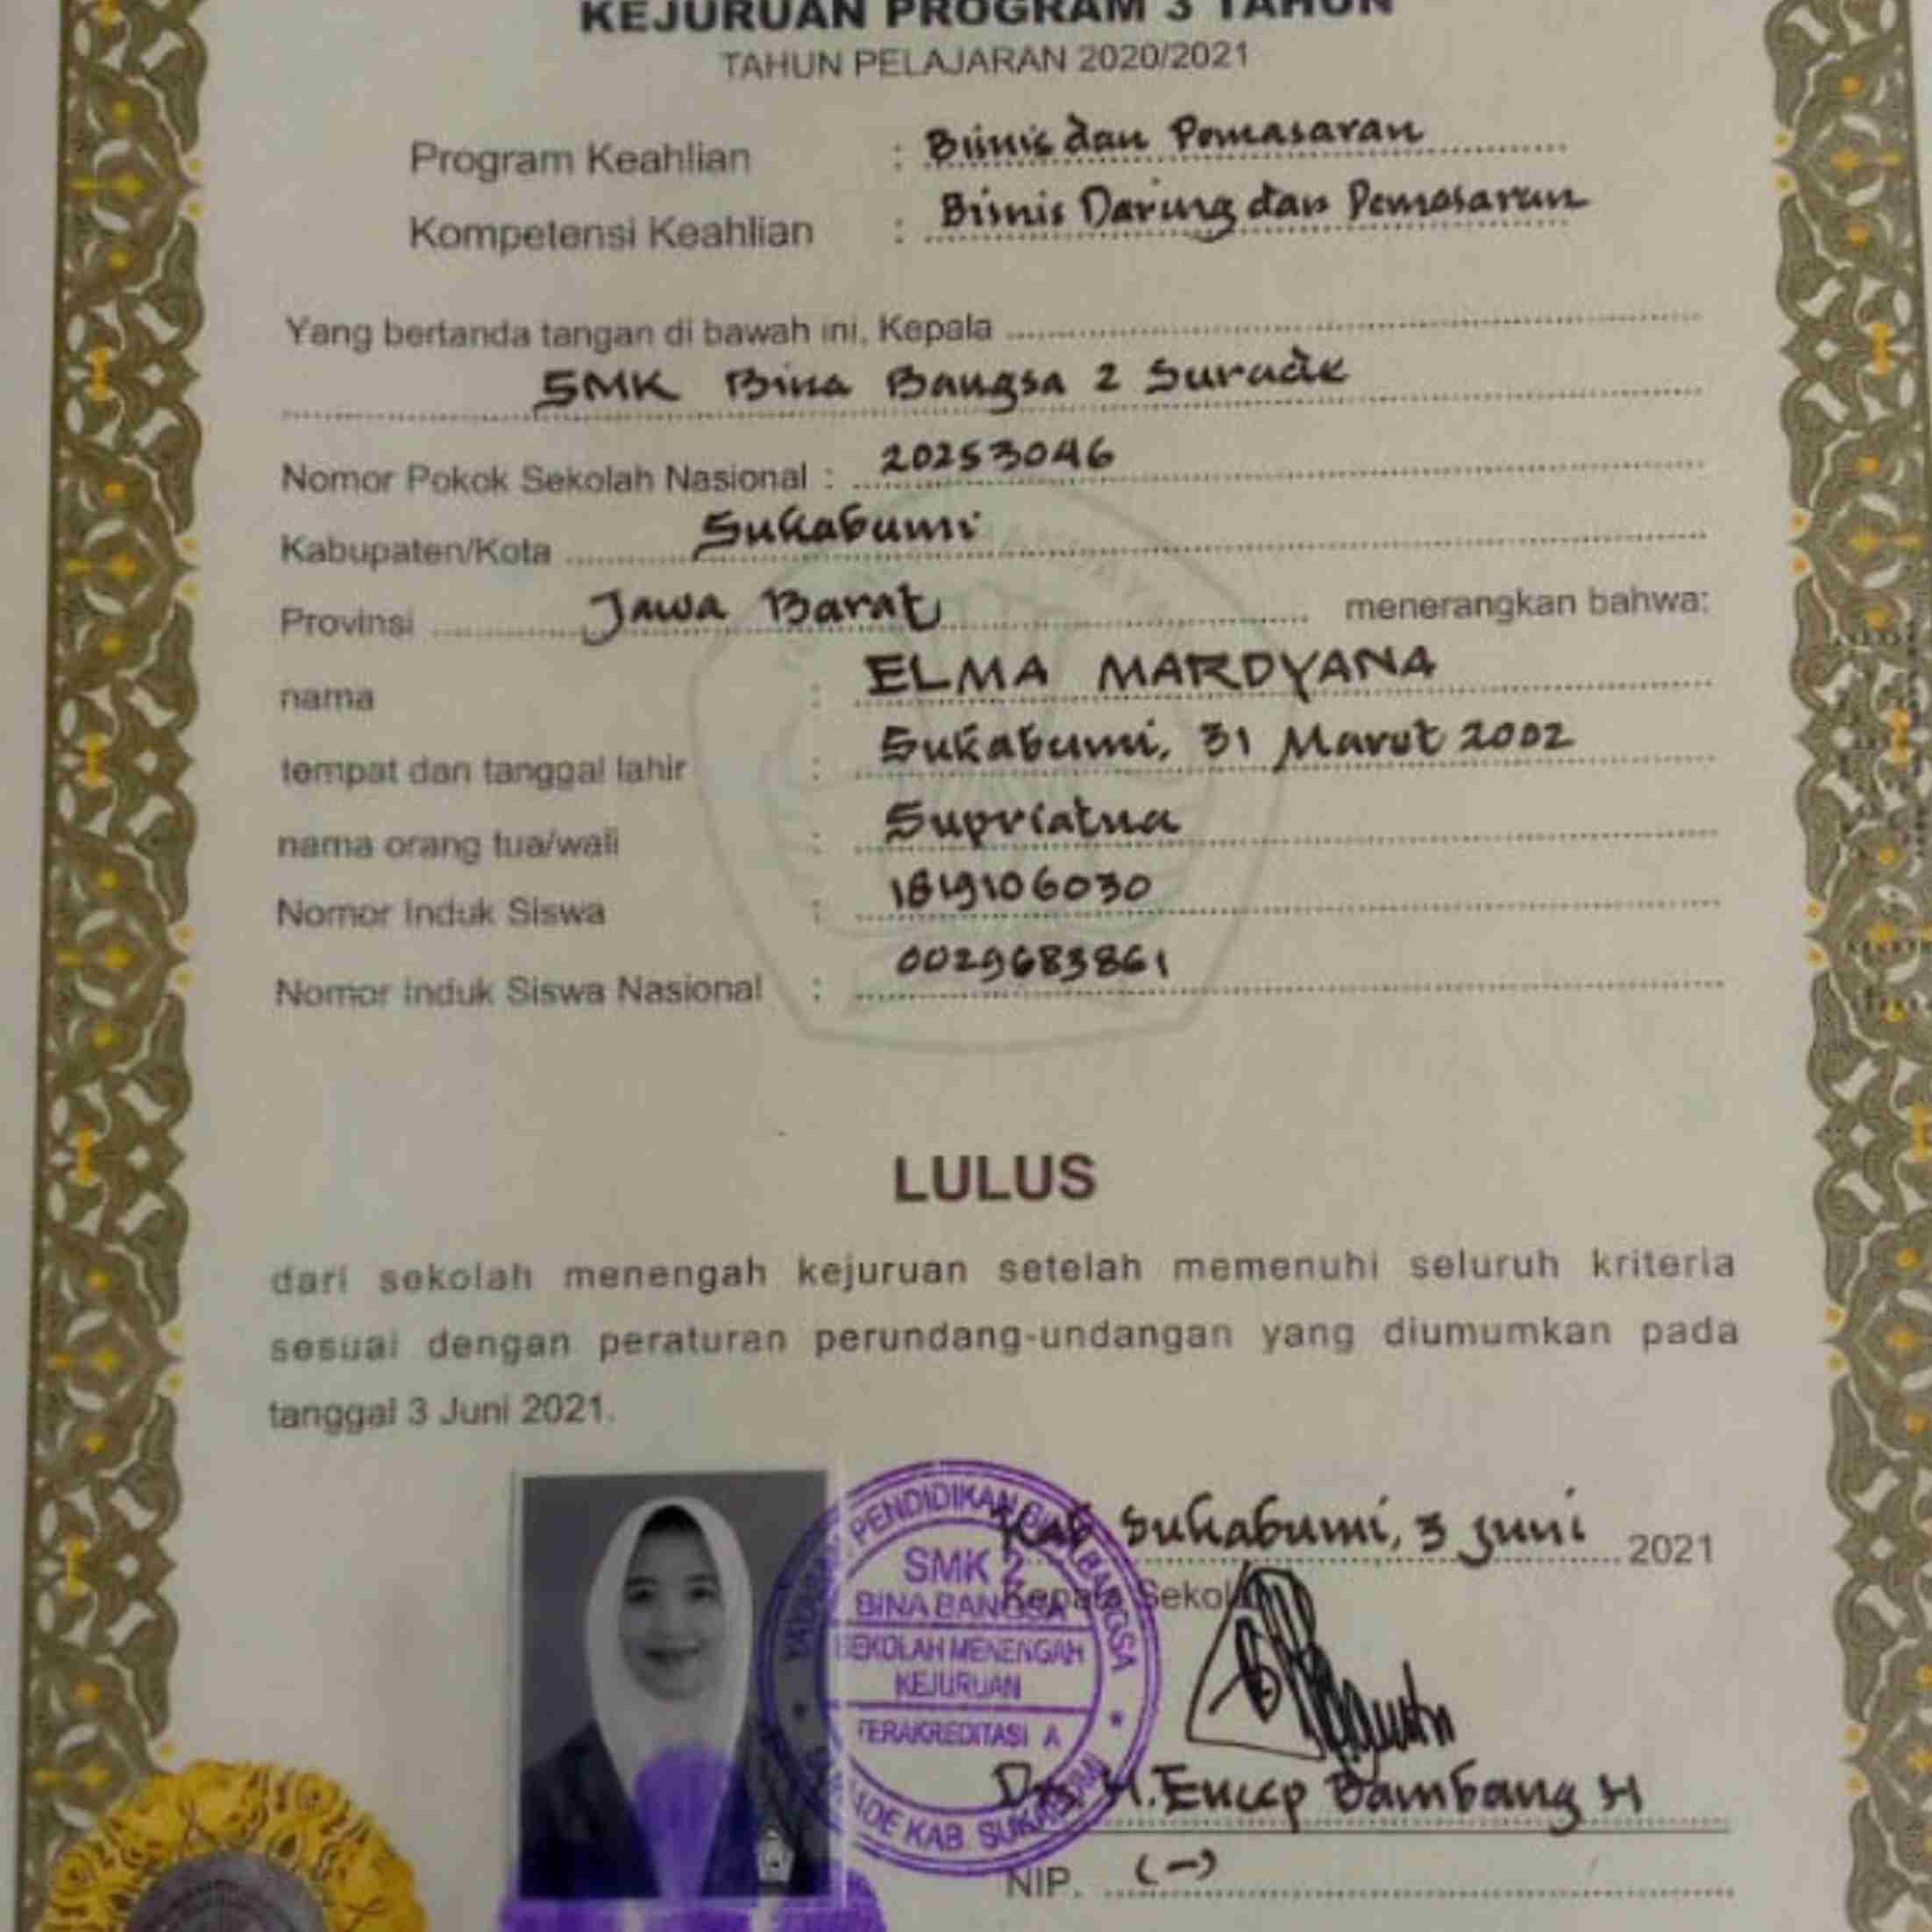 KEJURUAN PROGRAM 3 TAHUN
TAHUN PELAJARAN 2020/2021
Program Keahlian : Bisnis dan Pemasaran
Kompetensi Keahlian : Bisnis Daring dan Pemasaran
Yang bertanda tangan di bawah ini, Kepala
SMK Bina Bangsa 2 Surade
Nomor Pokok Sekolah Nasional : 20253046
Kabupaten/Kota Sukabumi
Provinsi Jawa Barat menerangkan bahwa:
nama : ELMA MARDYANA
tempat dan tanggal lahir : Sukabumi, 31 Maret 2002
nama orang tua/wali : Supriatna
Nomor Induk Siswa : 1819106030
Nomor Induk Siswa Nasional : 0029683861
LULUS
dari sekolah menengah kejuruan setelah memenuhi seluruh kriteria
sesuai dengan peraturan perundang-undangan yang diumumkan pada
tanggal 3 Juni 2021.
Kab Sukabumi, 3 Juni 2021
Kepala Sekolah
PENDIDIKAN BINA BANGSA
SMK 2
BINA BANGSA
SEKOLAH MENENGAH
KEJURUAN
TERAKREDITASI A
KAB. SUKABUMI
Drs. H. Encep Bambang H
NIP. (-)